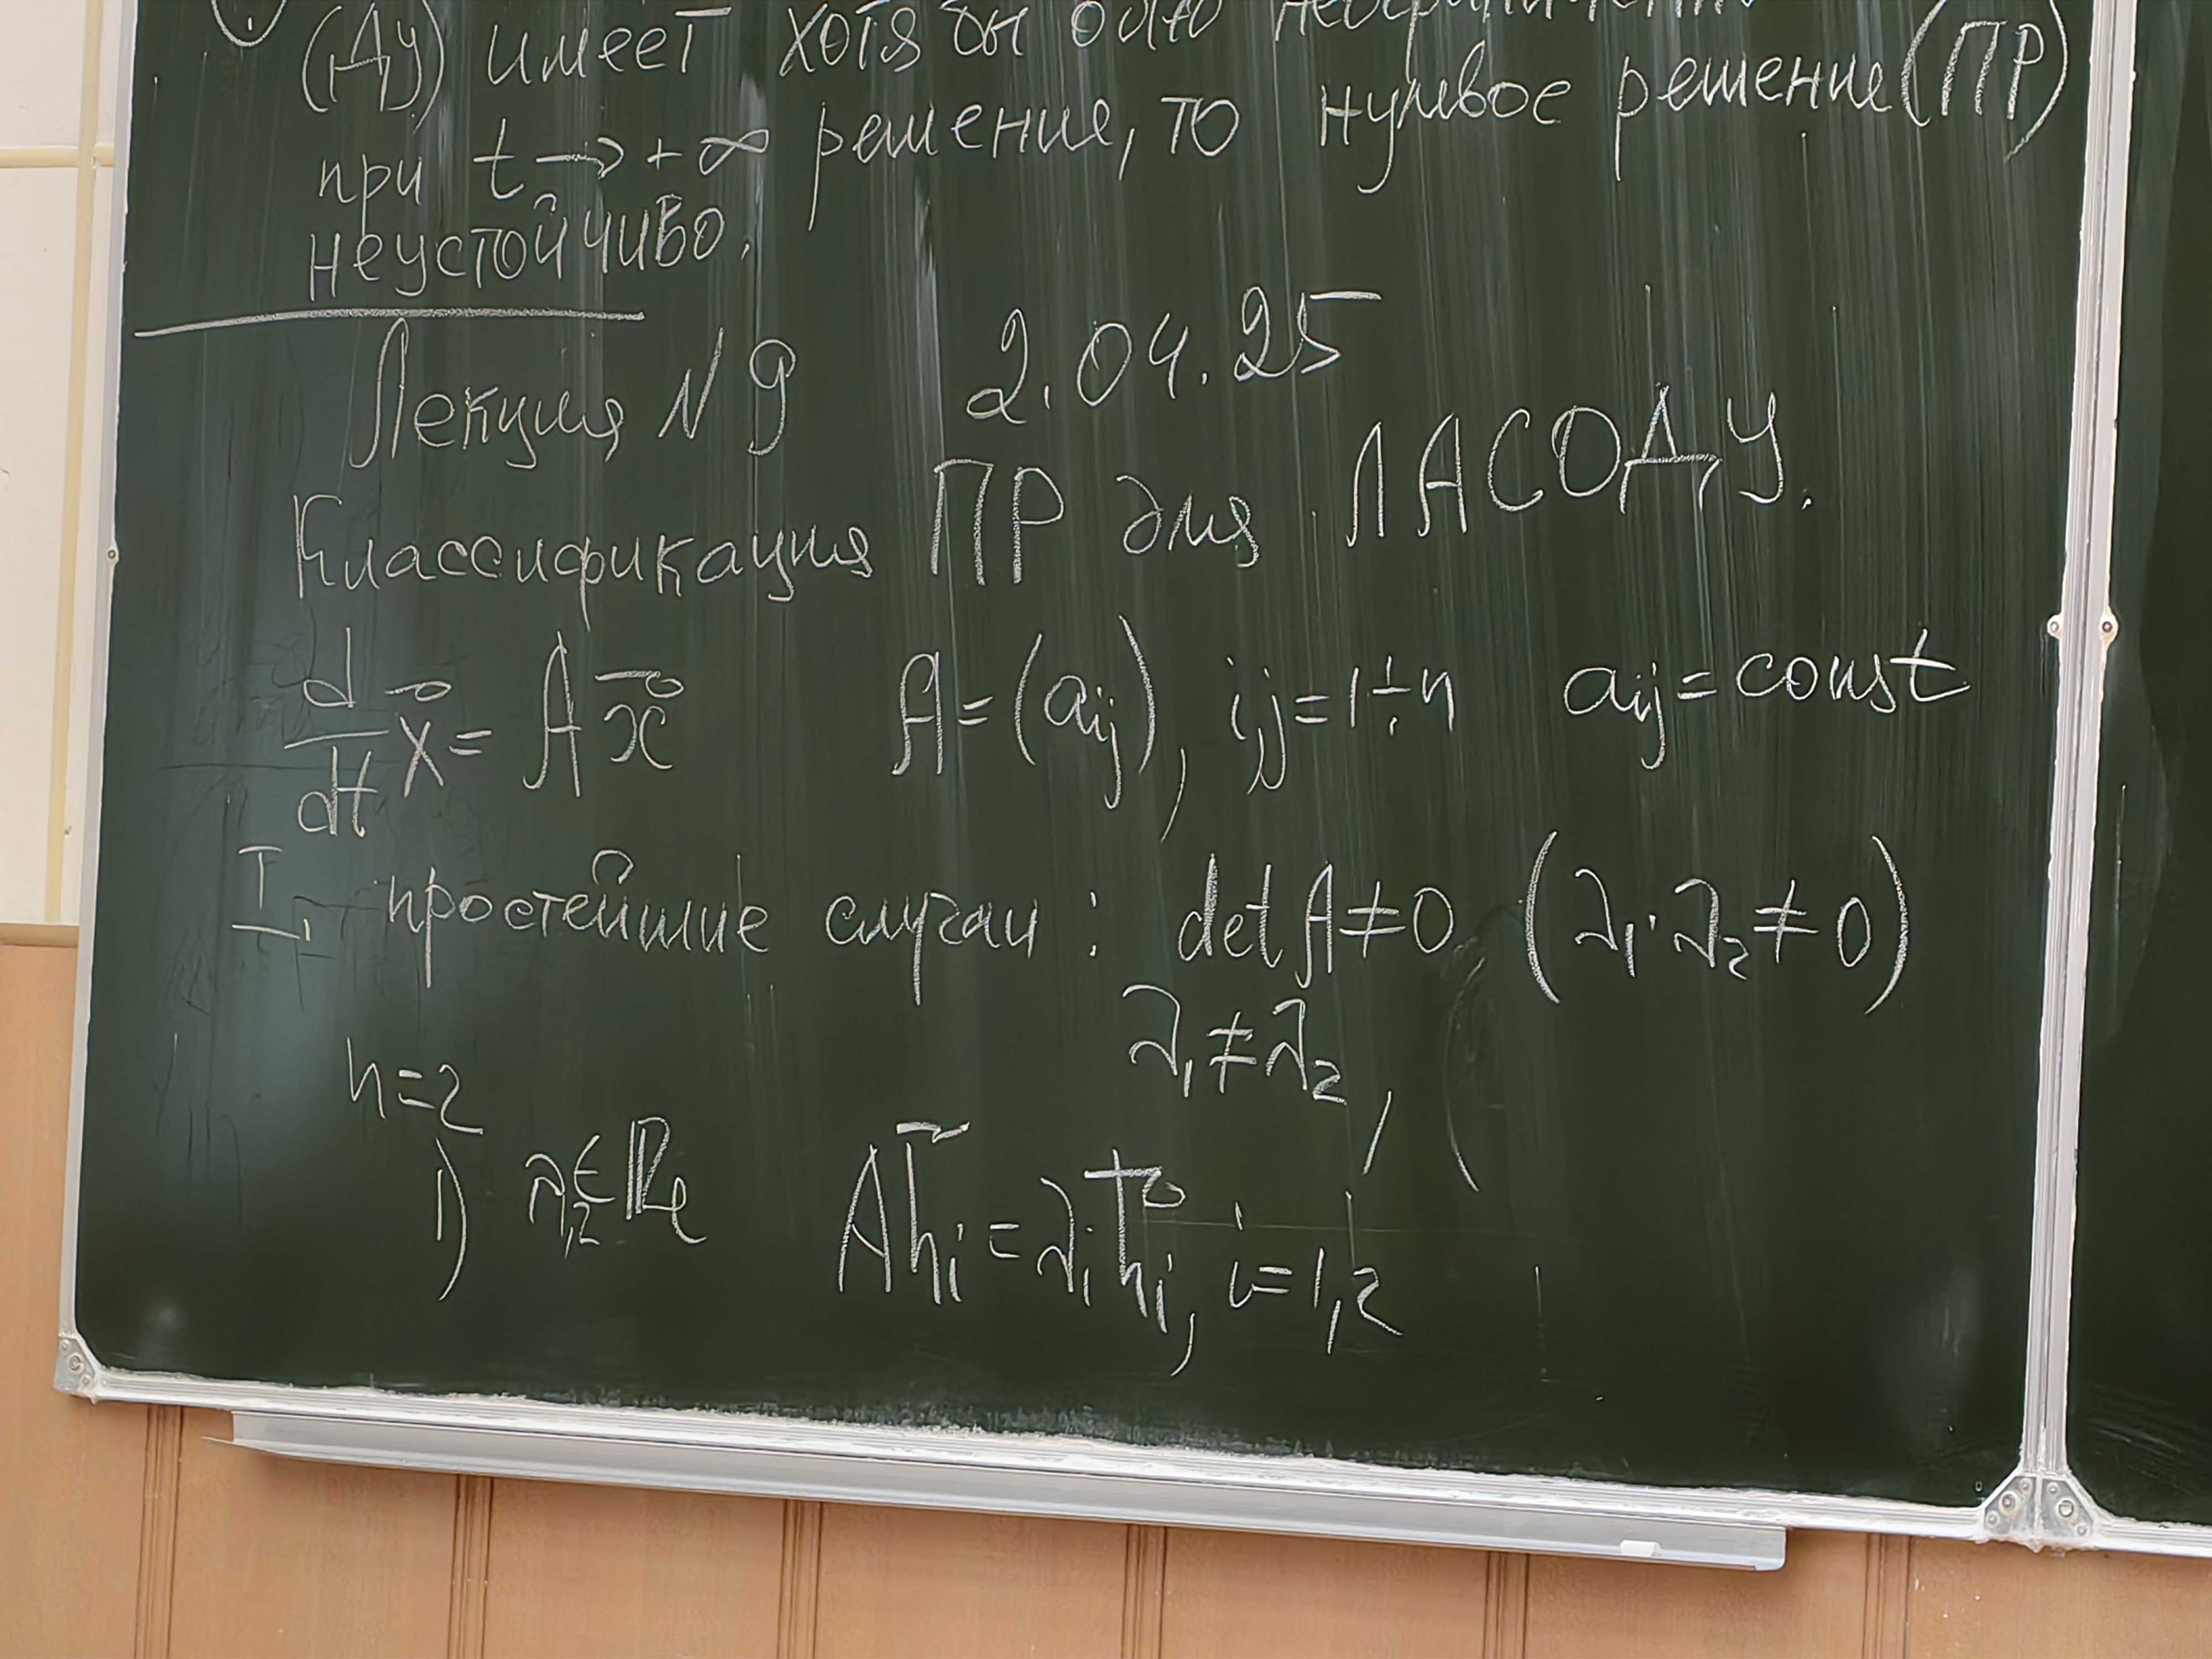 (ДУ) имеет хотя бы одно
при t → +∞ решение, то нулевое решение (ПР)
неустойчиво.
Лекция N 9 2.04.25
Классификация ПР для ЛАСОДУ.
d/dt x⃗ = A x⃗ A = (aij), i,j = 1÷n aij = const
I. простейшие случаи : det A ≠ 0 (λ₁·λ₂ ≠ 0)
n=2 λ₁ ≠ λ₂,
1) λ₁,₂ ∈ Re Ah⃗i = λih⃗i, i=1,2